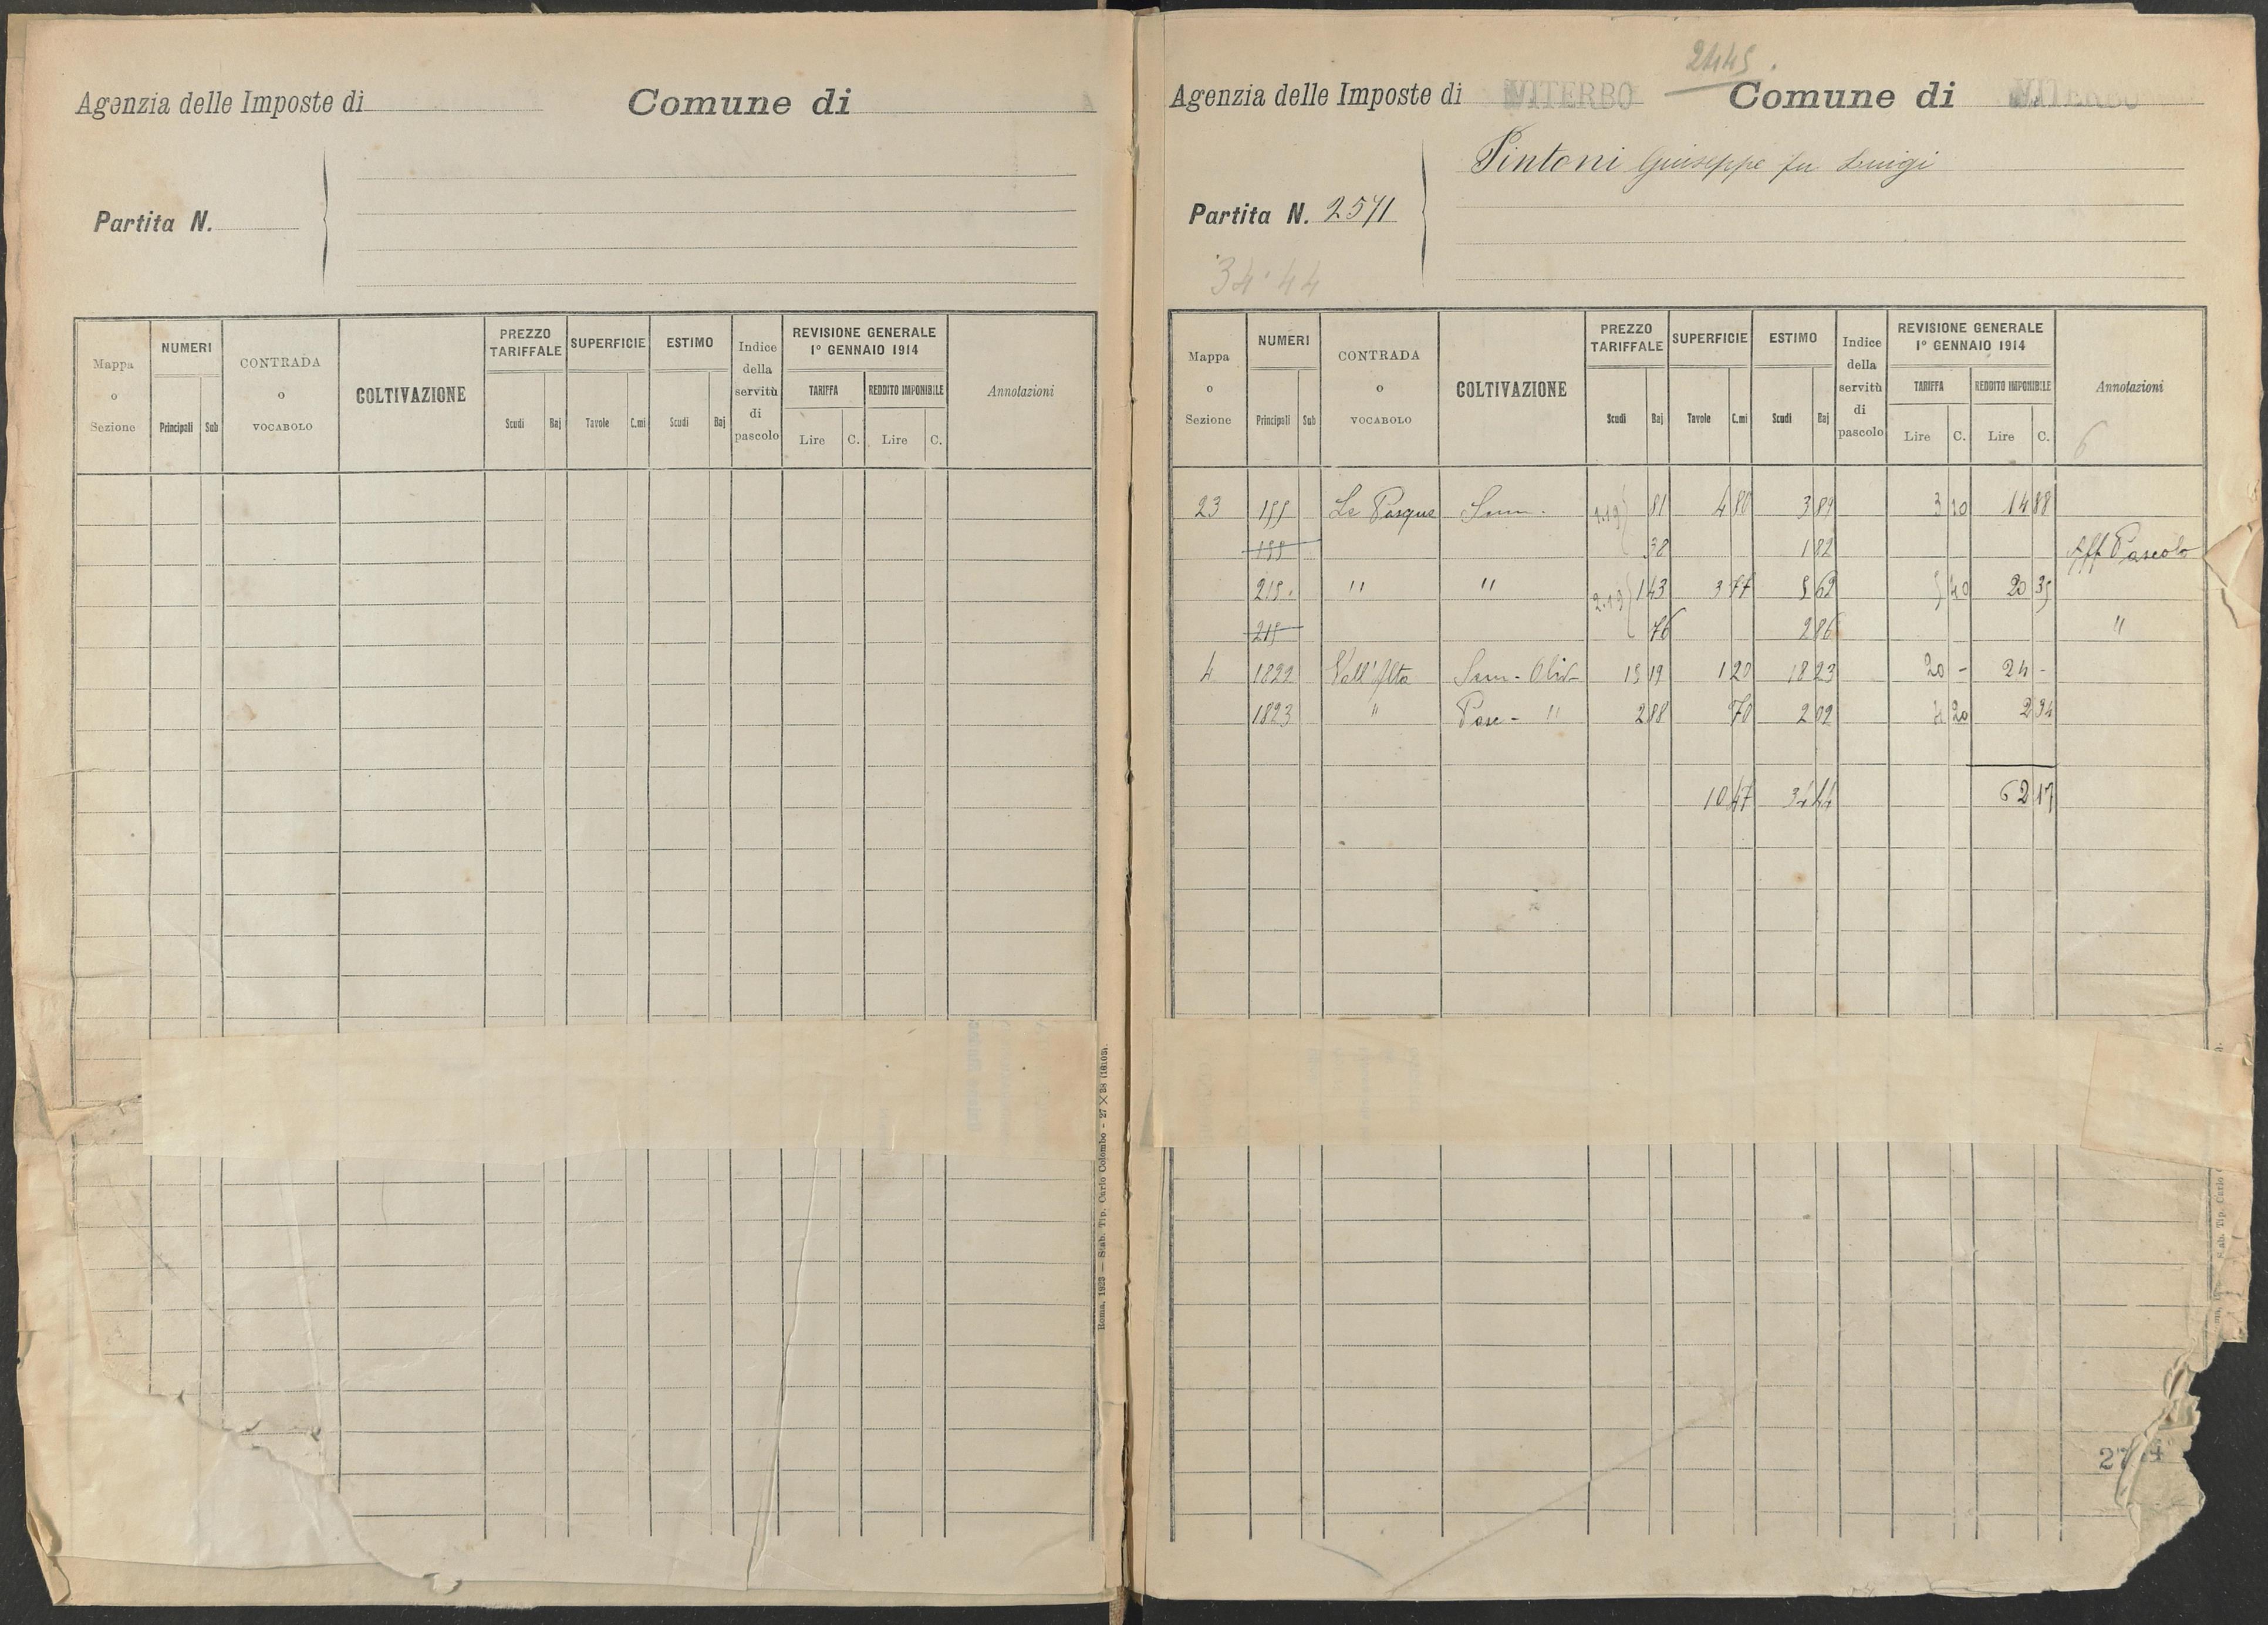 Agenzia delle Imposte di
Comune di
Partita N.
Mappa o Sezione
NUMERI
Principali Sub
CONTRADA o VOCABOLO
COLTIVAZIONE
PREZZO TARIFFALE
Scudi Baj
SUPERFICIE
Tavole C.mi
ESTIMO
Scudi Baj
Indice della servitù di pascolo
REVISIONE GENERALE 1° GENNAIO 1914
TARIFFA
Lire C.
REDDITO IMPONIBILE
Lire C.
Annotazioni
Roma, 1923 — Stab. Tip. Carlo Colombo - 27 × 38 (16103).
2445.
Agenzia delle Imposte di VITERBO
Comune di VITERBO
Pintoni Giuseppe fu Luigi
Partita N. 2571
34.44
Mappa o Sezione
NUMERI
Principali Sub
CONTRADA o VOCABOLO
COLTIVAZIONE
PREZZO TARIFFALE
Scudi Baj
SUPERFICIE
Tavole C.mi
ESTIMO
Scudi Baj
Indice della servitù di pascolo
REVISIONE GENERALE 1° GENNAIO 1914
TARIFFA
Lire C.
REDDITO IMPONIBILE
Lire C.
Annotazioni
6
23 155 Le Pasque Sem. 1.19 81 4 80 3 89 3 10 14 88
155 38 1 82 Aff Pascolo
215. " " 2.19 1 43 3 77 5 62 5 40 20 35
215 76 2 86 "
4 1822 Vall'Alta Sem - Oliv 15 19 1 20 18 23 20 - 24 -
1823 " Pasc - " 2 88 70 2 02 4 20 2 94
10 47 34 44 62 17